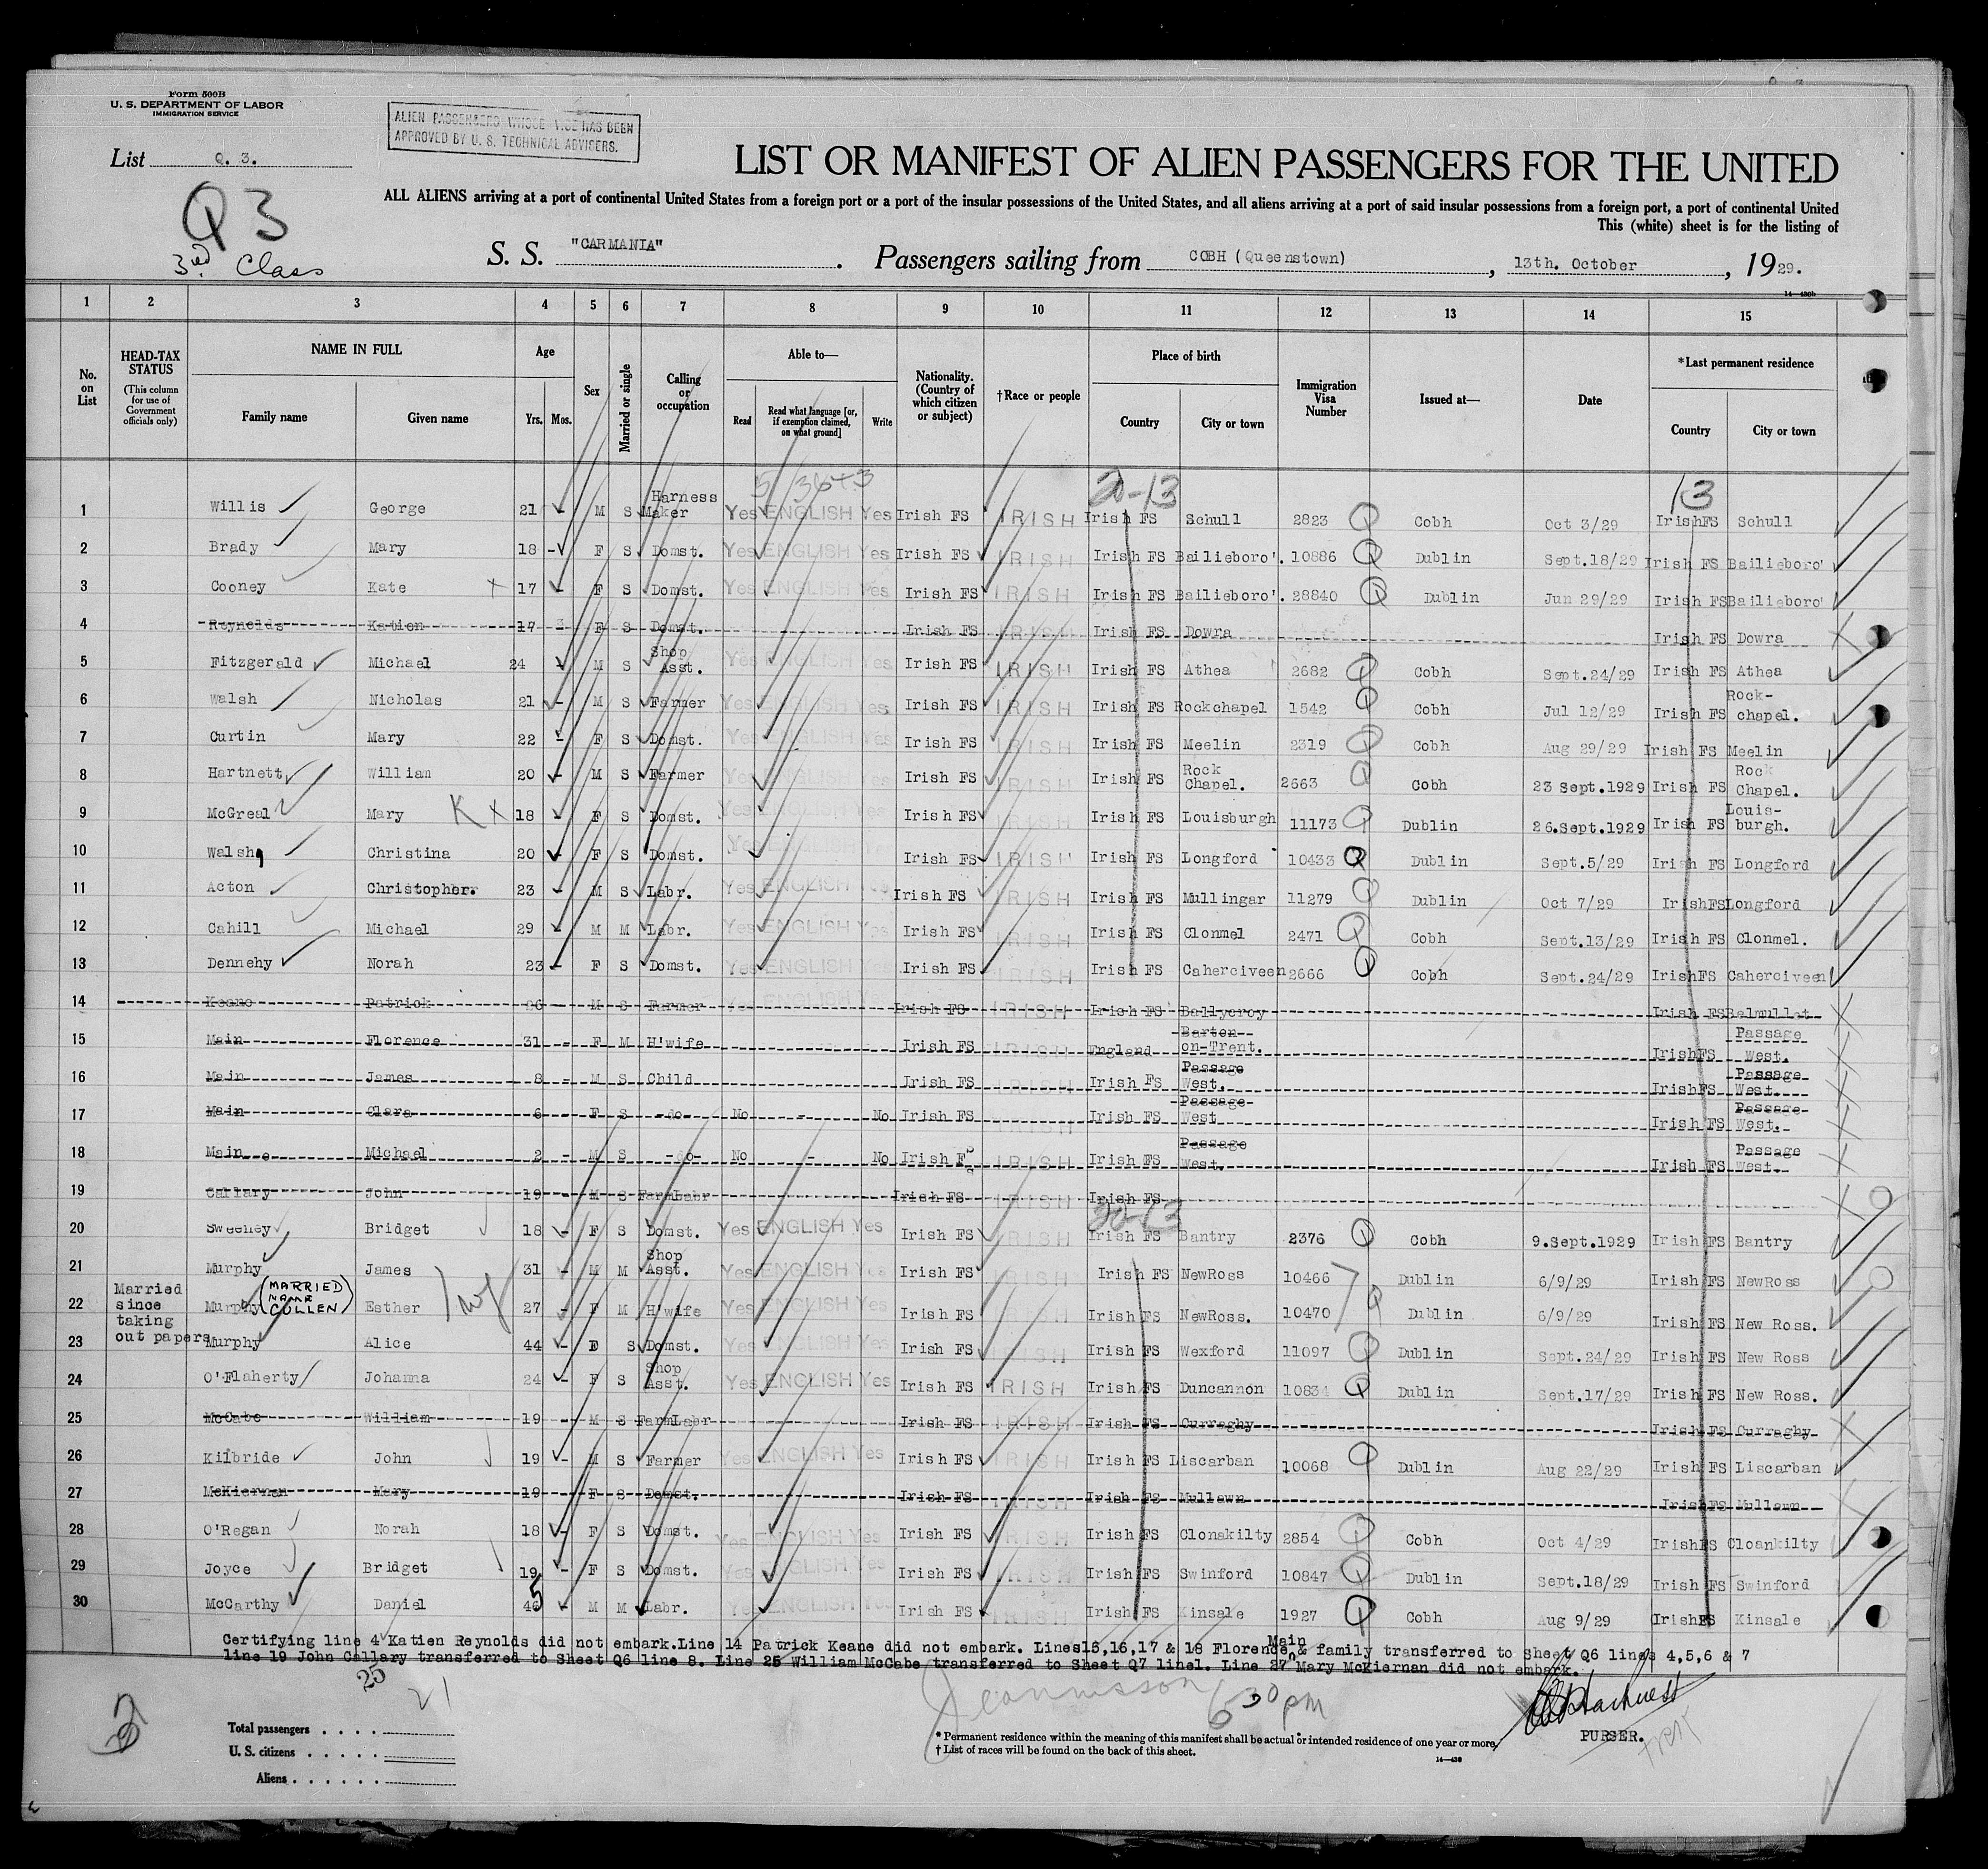 Form 500B
U. S. DEPARTMENT OF LABOR
IMMIGRATION SERVICE
ALIEN PASSENGERS WHOSE VISE HAS BEEN
APPROVED BY U. S. TECHNICAL ADVISERS.
List Q. 3.
Q 3
3rd. Class
LIST OR MANIFEST OF ALIEN PASSENGERS FOR THE UNITED
ALL ALIENS arriving at a port of continental United States from a foreign port or a port of the insular possessions of the United States, and all aliens arriving at a port of said insular possessions from a foreign port, a port of continental United
This (white) sheet is for the listing of
S. S. "CARMANIA". Passengers sailing from COBH (Queenstown), 13th. October, 1929.
1 2 3 4 5 6 7 8 9 10 11 12 13 14 15
No. on List
HEAD-TAX STATUS (This column for use of Government officials only)
NAME IN FULL Family name Given name
Age Yrs. Mos.
Sex
Married or single
Calling or occupation
Able to— Read Read what language [or, if exemption claimed, on what ground] Write
Nationality. (Country of which citizen or subject)
†Race or people
Place of birth Country City or town
Immigration Visa Number
Issued at—
Date
*Last permanent residence Country City or town
20-13 13
1 Willis George 21 M S Harness Maker Yes ENGLISH Yes Irish FS IRISH Irish FS Schull 2823 Q Cobh Oct 3/29 IrishFS Schull
2 Brady Mary 18 - F S Domst. Yes ENGLISH Yes Irish FS IRISH Irish FS Bailieboro'. 10886 Q Dublin Sept.18/29 Irish FS Bailieboro'
3 Cooney Kate 17 - F S Domst. Yes ENGLISH Yes Irish FS IRISH Irish FS Bailieboro'. 28840 Q Dublin Jun 29/29 Irish FS Bailieboro'
4 Reynolds Katien 17 F S Domst. Irish FS IRISH Irish FS Dowra Irish FS Dowra
5 Fitzgerald Michael 24 M S Shop Asst. Yes ENGLISH Yes Irish FS IRISH Irish FS Athea 2682 Q Cobh Sept.24/29 Irish FS Athea
6 Walsh Nicholas 21 - M S Farmer Yes ENGLISH Yes Irish FS IRISH Irish FS Rockchapel 1542 Q Cobh Jul 12/29 Irish FS Rock-chapel.
7 Curtin Mary 22 - F S Domst. Yes ENGLISH Yes Irish FS IRISH Irish FS Meelin 2319 Q Cobh Aug 29/29 Irish FS Meelin
8 Hartnett William 20 - M S Farmer Yes ENGLISH Yes Irish FS IRISH Irish FS Rock Chapel. 2663 Q Cobh 23 Sept.1929 Irish FS Rock Chapel.
9 McGreal Mary 18 - F S Domst. Yes ENGLISH Yes Irish FS IRISH Irish FS Louisburgh 11173 Q Dublin 26.Sept.1929 Irish FS Louis-burgh.
10 Walsh Christina 20 - F S Domst. Yes ENGLISH Yes Irish FS IRISH Irish FS Longford 10433 Q Dublin Sept.5/29 Irish FS Longford
11 Acton Christopher. 23 - M S Labr. Yes ENGLISH Yes Irish FS IRISH Irish FS Mullingar 11279 Q Dublin Oct 7/29 IrishFS Longford
12 Cahill Michael 29 - M M Labr. Yes ENGLISH Yes Irish FS IRISH Irish FS Clonmel 2471 Q Cobh Sept.13/29 Irish FS Clonmel.
13 Dennehy Norah 23 - F S Domst. Yes ENGLISH Yes Irish FS IRISH Irish FS Caherciveen 2666 Q Cobh Sept.24/29 IrishFS Caherciveen
14 Keane Patrick 26 - M S Farmer Yes ENGLISH Yes Irish FS IRISH Irish FS Ballycroy Irish FS Belmullet
15 Main Florence 31 - F M H'wife Irish FS IRISH England Barton-on-Trent. IrishFS Passage West.
16 Main James 8 - M S Child Irish FS IRISH Irish FS Passage West. IrishFS Passage West.
17 Main Clara 6 - F S -do- No - No Irish FS IRISH Irish FS Passage West Irish FS Passage West.
18 Main Michael 2 - M S -do- No - No Irish FS IRISH Irish FS Passage West. Irish FS Passage West.
19 Callary John 19 - M S FarmLabr Irish FS IRISH Irish FS
20-13
20 Sweeney Bridget 18 - F S Domst. Yes ENGLISH Yes Irish FS IRISH Irish FS Bantry 2376 Q Cobh 9.Sept.1929 Irish FS Bantry
21 Murphy James 31 M M Shop Asst. Yes ENGLISH Yes Irish FS IRISH Irish FS NewRoss 10466 Dublin 6/9/29 Irish FS NewRoss
22 Married since taking out papers Murphy (MARRIED NAME CULLEN) Esther 27 - F M H'wife Yes ENGLISH Yes Irish FS IRISH Irish FS NewRoss. 10470 Q Dublin 6/9/29 Irish FS New Ross.
23 Murphy Alice 44 - F S Domst. Yes ENGLISH Yes Irish FS IRISH Irish FS Wexford 11097 Q Dublin Sept.24/29 Irish FS New Ross
24 O'Flaherty Johanna 24 - F S Shop Asst. Yes ENGLISH Yes Irish FS IRISH Irish FS Duncannon 10834 Q Dublin Sept.17/29 Irish FS New Ross.
25 McCabe William 19 - M S FarmLabr Irish FS IRISH Irish FS Curraghy Irish FS Curraghy
26 Kilbride John 19 - M S Farmer Yes ENGLISH Yes Irish FS IRISH Irish FS Liscarban 10068 Q Dublin Aug 22/29 Irish FS Liscarban
27 McKiernan Mary 19 F S Domst. Irish FS IRISH Irish FS Mullawn Irish FS Mullawn
28 O'Regan Norah 18 - F S Domst. Yes ENGLISH Yes Irish FS IRISH Irish FS Clonakilty 2854 Q Cobh Oct 4/29 IrishFS Cloankilty
29 Joyce Bridget 19 - F S Domst. Yes ENGLISH Yes Irish FS IRISH Irish FS Swinford 10847 Q Dublin Sept.18/29 Irish FS Swinford
30 McCarthy Daniel 45 - M M Labr. Yes ENGLISH Yes Irish FS IRISH Irish FS Kinsale 1927 Q Cobh Aug 9/29 IrishFS Kinsale
Certifying line 4 Katien Reynolds did not embark.Line 14 Patrick Keane did not embark. Lines15,16,17 & 18 Florence Main & family transferred to Sheet Q6 lines 4,5,6 & 7
line 19 John Callary transferred to Sheet Q6 line 8. Line 25 William McCabe transferred to Sheet Q7 line1. Line 27 Mary McKiernan did not embark.
25
21
6 30 pm
Total passengers . . . .
U. S. citizens . . . . .
Aliens . . . . . .
* Permanent residence within the meaning of this manifest shall be actual or intended residence of one year or more.
† List of races will be found on the back of this sheet.
PURSER.